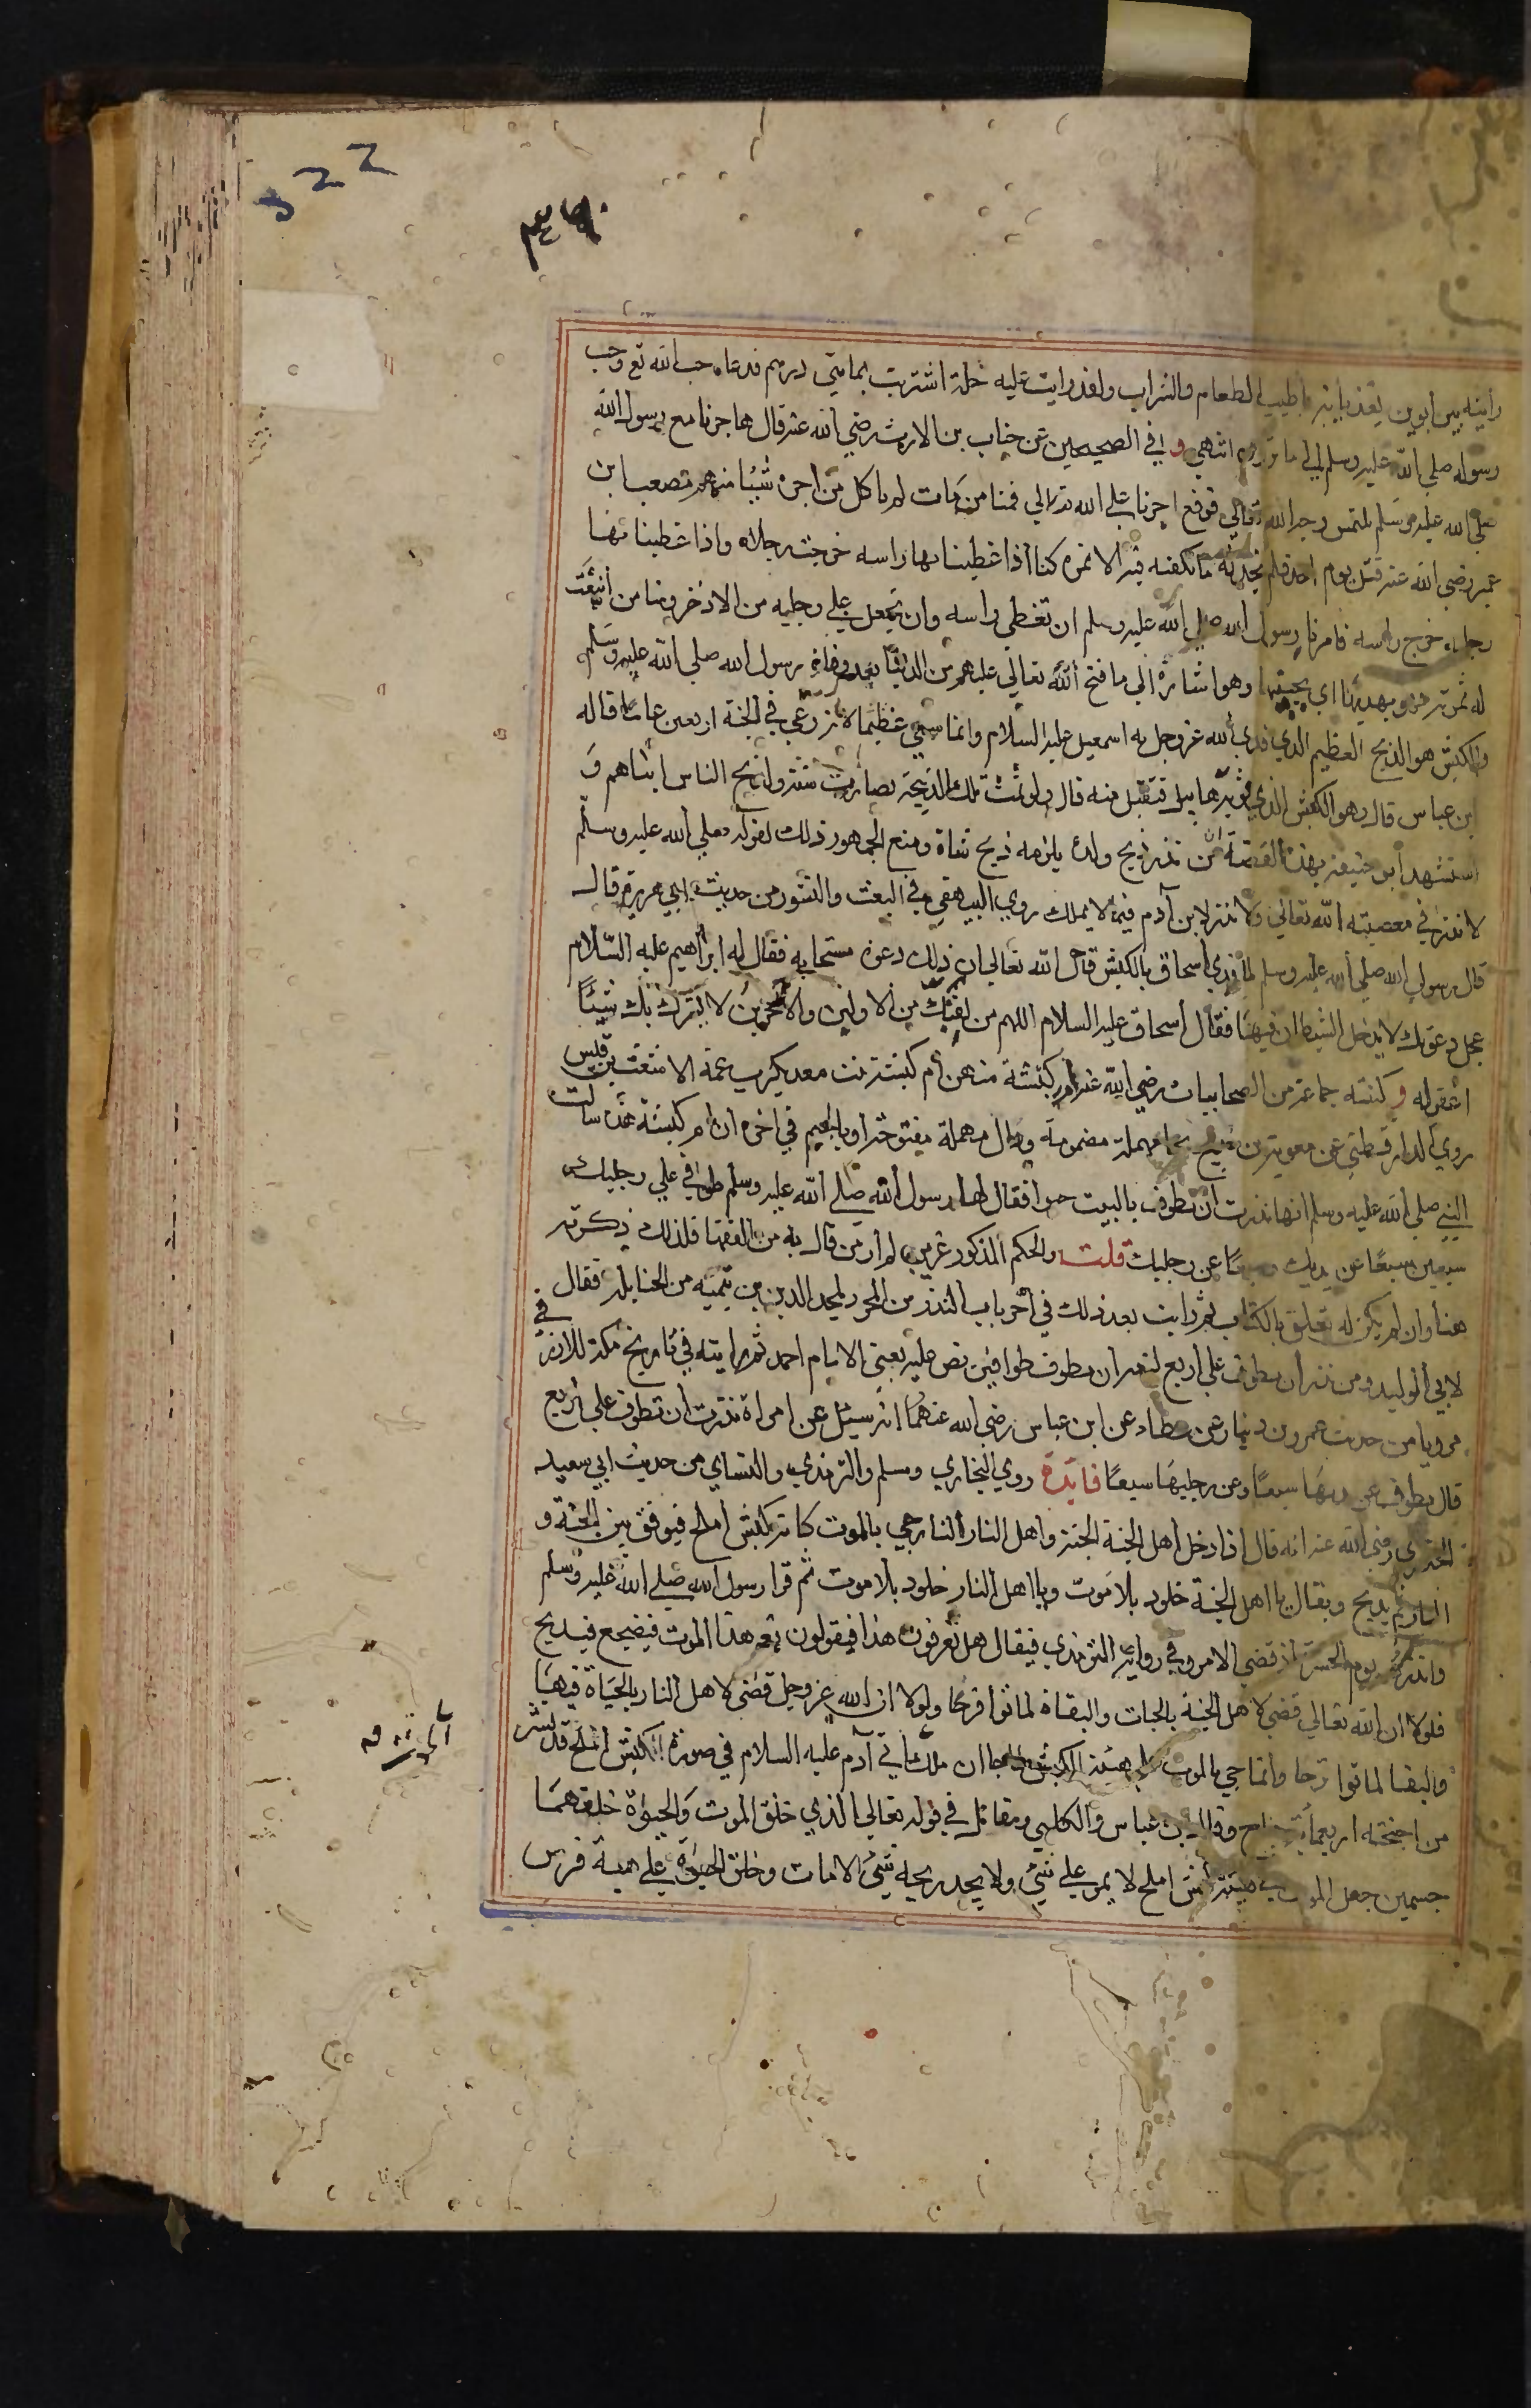 322
٣٤٠
رايته بين ابوين يغذيانه باطيب الطعام والشراب ولقد رايت عليه حلة اشتريت بمايتي درهم فدعاه حب الله تع وحب
رسوله صلي الله عليه وسلم الي ما ترون انتهي و في الصحيحين عن خباب بن الارت رضي الله عنه قال هاجرنا مع رسول الله
صلي الله عليه وسلم نلتمس وجه الله تعالي فوقع اجرنا علي الله تعالي فمنا من مات لم ياكل من اجره شيئا منهم مصعب بن
عمير رضي الله عنه قتل يوم احد فلم نجد له ما نكفنه فيه الا نمرة كنا اذا غطينا بها راسه خرجت رجلاه واذا غطينا بها
رجليه خرج راسه فامرنا رسول الله صلي الله عليه وسلم ان نغطي راسه وان نجعل علي رجليه من الاذخر ومنا من اينعت
له ثمرته فهو يهديها اي يجنيها وهو اشارة الي ما فتح الله تعالي عليهم من الدنيا بعد وفاة رسول الله صلي الله عليه وسلم
والكبش هو الذبح العظيم الذي فدي الله عز وجل به اسمعيل عليه السلام وانما سمي عظيما لانه رعي في الجنة اربعين عاما قاله
ابن عباس قال وهو الكبش الذي قربه هابيل فتقبل منه قال ولو تمت تلك الذبيحة لصارت سنة ولذبح الناس ابناهم و
استشهد ابو حنيفة بهذه القصة ان من نذر ذبح ولده يلزمه ذبح شاة ومنع الجمهور ذلك لقوله صلي الله عليه وسلم
لا نذر في معصية الله تعالي ولا نذر لابن آدم فيما لا يملك روي البيهقي في البعث والنشور من حديث ابي هريرة قال
قال رسول الله صلي الله عليه وسلم لما فدي اسحاق بالكبش قال الله تعالي ان ذلك دعوة مستجابة فقال له ابراهيم عليه السلام
عجل دعوتك لا يدخل الشيطان فيها فقال اسحاق عليه السلام اللهم من لقيك من الاولين والاخرين لا يشرك بك شيئا
اغفر له و كبشه جماعة من الصحابيات رضي الله عنهم كبشة منهن ام كبشة بنت معديكرب عمة الاشعث بن قيس
روي الدارقطني عن معوية بن حديج بحاء مهملة مضمومة ودال مهملة مفتوحة وبالجيم في اخره ان ام كبشة عمة سالت
النبي صلي الله عليه وسلم انها نذرت ان تطوف بالبيت حبوا فقال لها رسول الله صلي الله عليه وسلم طوفي علي رجليك
سبعين سبعا عن يديك وسبعا عن رجليك قلت والحكم المذكور غريب لم ار من قال به من الفقها فلذلك ذكرته
هنا وان لم يكن له تعلق بالكتاب ثم رايت بعد ذلك في آخر باب النذر من المحرر لمجد الدين بن تيمية من الحنابلة فقال
ومن نذر ان يطوف علي اربع لزمه ان يطوف طوافين نص عليه يعني الامام احمد ثم رايته في تاريخ مكة للازرقي
لابي الوليد
مرويا من حديث عمرو بن دينار عن عطاء عن ابن عباس رضي الله عنهما انه سئل عن امراة نذرت ان تطوف علي اربع
قال تطوف عن يديها سبعا وعن رجليها سبعا فايدة روي البخاري ومسلم والترمذي والنساي من حديث ابي سعيد
الخدري رضي الله عنه انه قال اذا دخل اهل الجنة الجنة واهل النار النار جي بالموت كانه كبش املح فيوقف بين الجنة و
النار فيذبح ويقال يا اهل الجنة خلود بلا موت ويا اهل النار خلود بلا موت ثم قرا رسول الله صلي الله عليه وسلم
وانذرهم يوم الحسرة اذ قضي الامر وفي رواية الترمذي فيقال هل تعرفون هذا فيقولون نعم هذا الموت فيضجع فيذبح
فلولا ان الله تعالي قضي لاهل الجنة بالحيات والبقاء لماتوا فرحا ولولا ان الله عز وجل قضي لاهل النار بالحياة فيها
والبقا لماتوا ترحا وانما جي بالموت علي هيئة الكبش لما جا ان ملك اتي آدم عليه السلام في صورة الكبش املح قد نشر
من اجنحته اربعماية جناح وقال ابن عباس والكلبي ومقاتل في قوله تعالي الذي خلق الموت والحيوة خلقهما
جسمين جعل الموت في هيئة كبش املح لا يمر علي شئ ولا يجد ريحه شئ الا مات وخلق الحيوة علي هيئة فرس